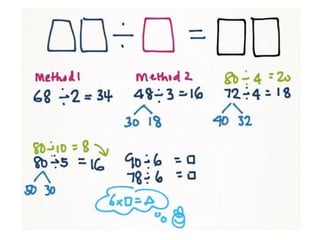 □□ ÷ □ = □□
Method 1
68 ÷ 2 = 34
Method 2
48 ÷ 3 = 16
30 18
80 ÷ 4 = 20
72 ÷ 4 = 18
40 32
80 ÷ 10 = 8
80 ÷ 5 = 16
50 30
90 ÷ 6 = □
78 ÷ 6 = □
6 × □ = △